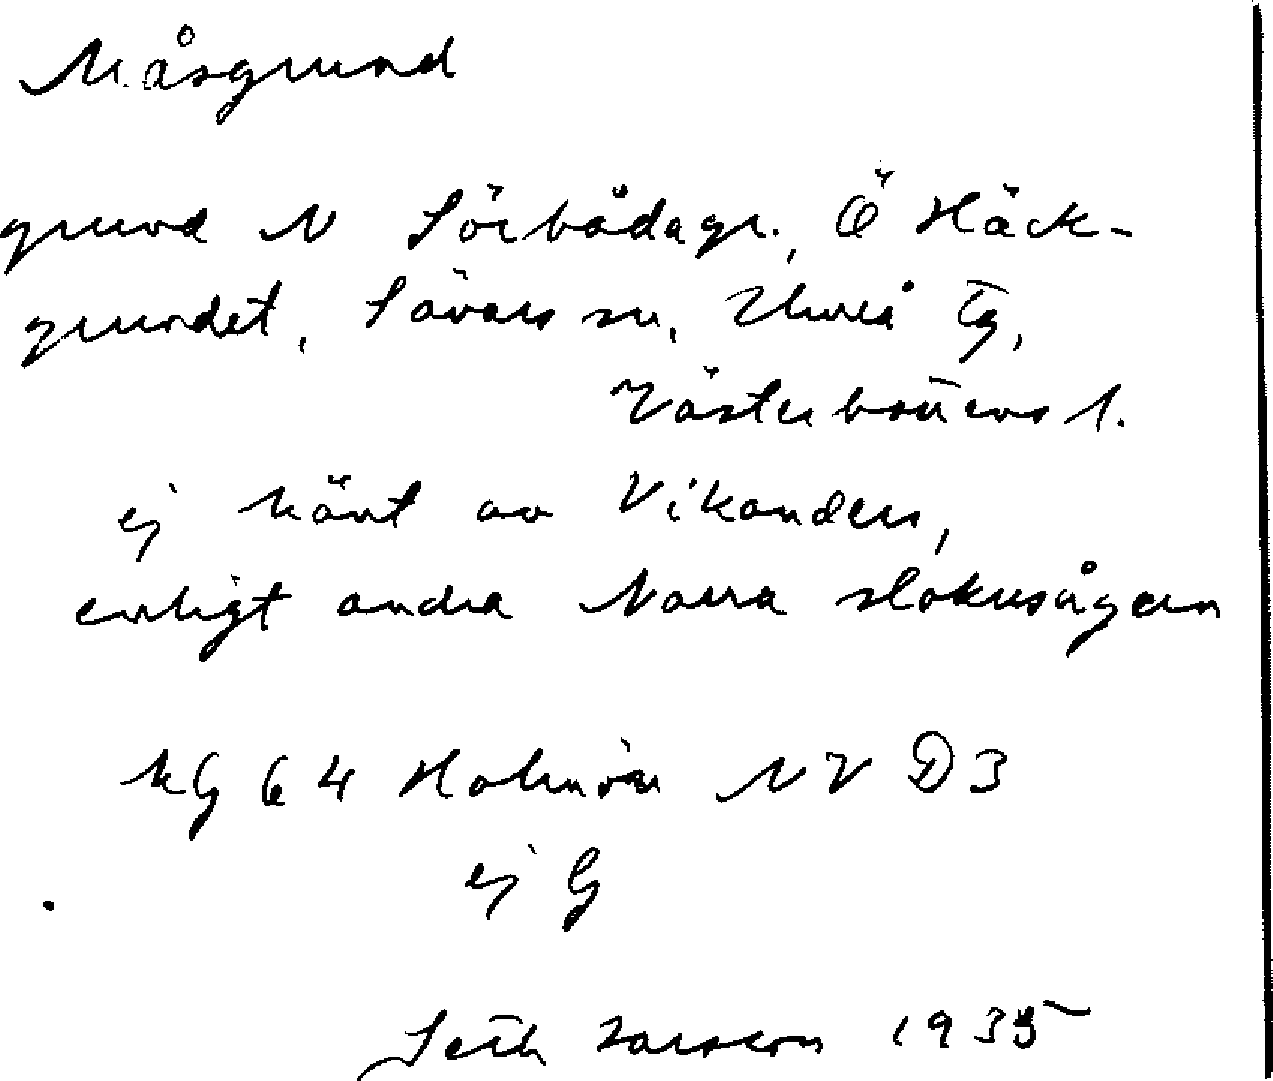 Måsgrund
grund N Sörbådagr., Ö Häck-
grundet, Sävars sn, Umeå tg,
Västerbottens l.
ej känt av Vikanders,
enligt andra Norra slokusågern
kG 64 Holmön NV D3
ej G
Seth Larsson 1935